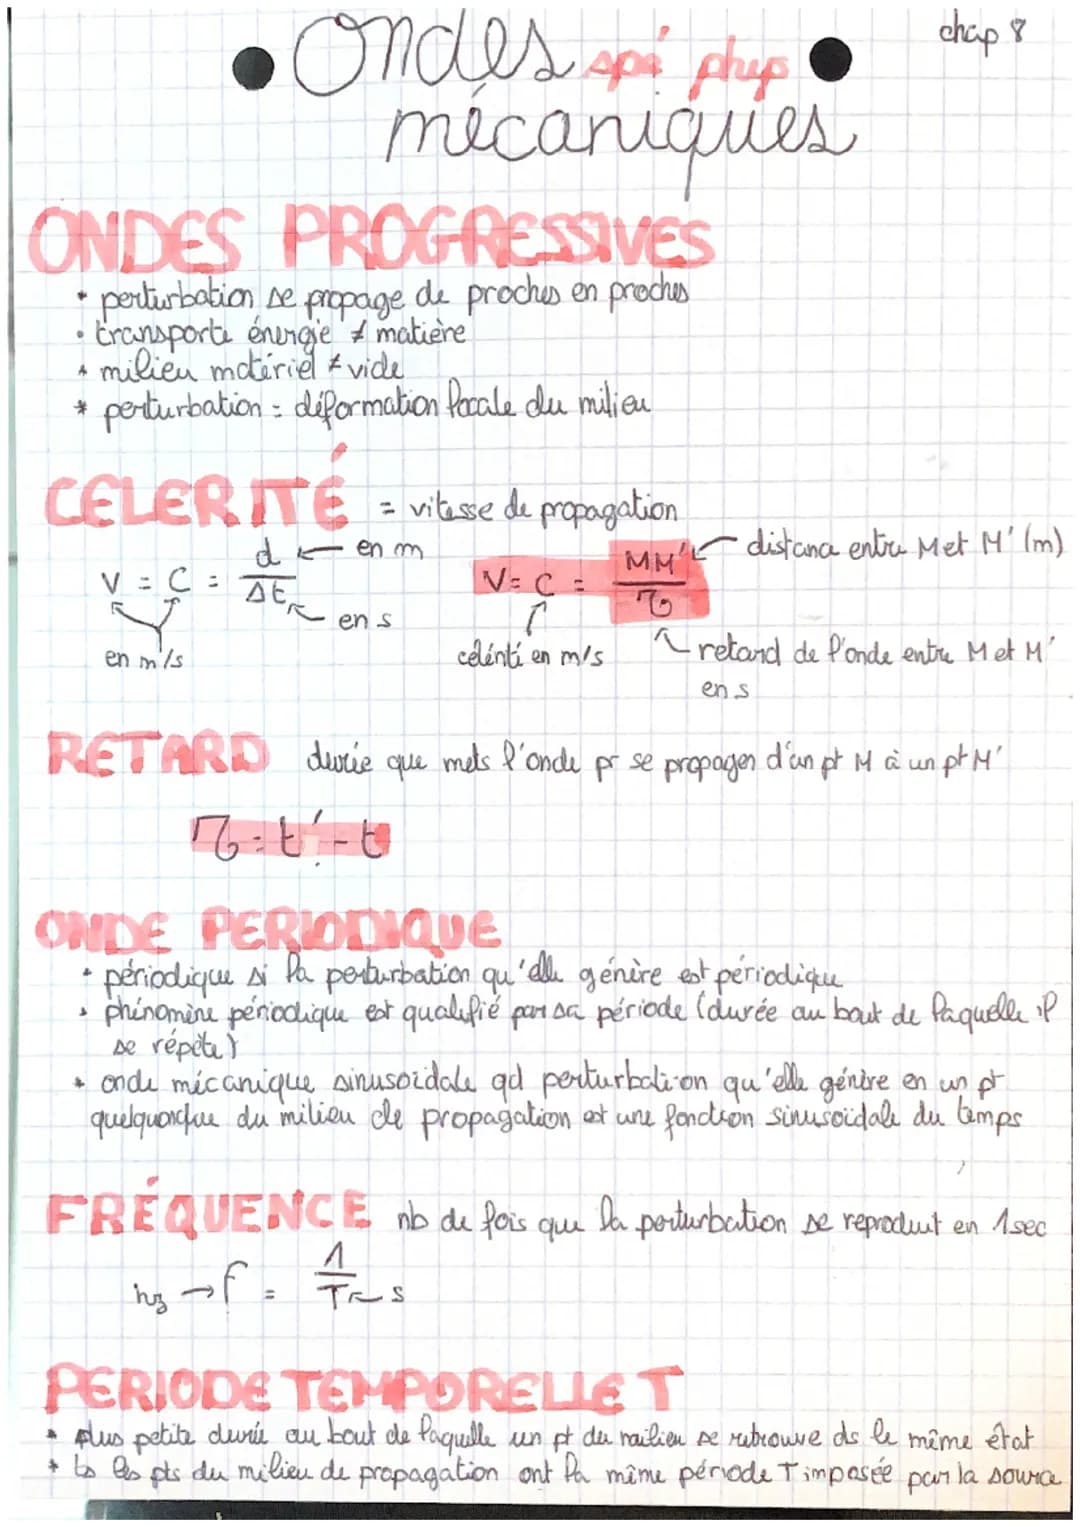 chap 8
• Ondes spé phys •
mécaniques
ONDES PROGRESSIVES
• perturbation se propage de proches en proches
• transporte énergie ≠ matière
• milieu matériel ≠ vide
* perturbation = déformation locale du milieu
CELERITÉ = vitesse de propagation
V = C = d/Δt
en m
en s
en m/s
V = C = MM'/τ
distance entre M et M' (m)
célérité en m/s
retard de l'onde entre M et M'
en s
RETARD durée que mets l'onde pr se propager d'un pt M à un pt M'
τ = t' - t
ONDE PERIODIQUE
• périodique si la perturbation qu'elle génère est périodique
• phénomène périodique est qualifié par sa période (durée au bout de laquelle il
se répète)
• onde mécanique sinusoïdale qd perturbation qu'elle génère en un pt
quelquonque du milieu de propagation est une fonction sinusoïdale du temps
FRÉQUENCE nb de fois que la perturbation se reproduit en 1sec
hz → f = 1/T ← s
PERIODE TEMPORELLE T
• plus petite durée au bout de laquelle un pt du milieu se retrouve ds le même état
• ts les pts du milieu de propagation ont la même période T imposée par la source